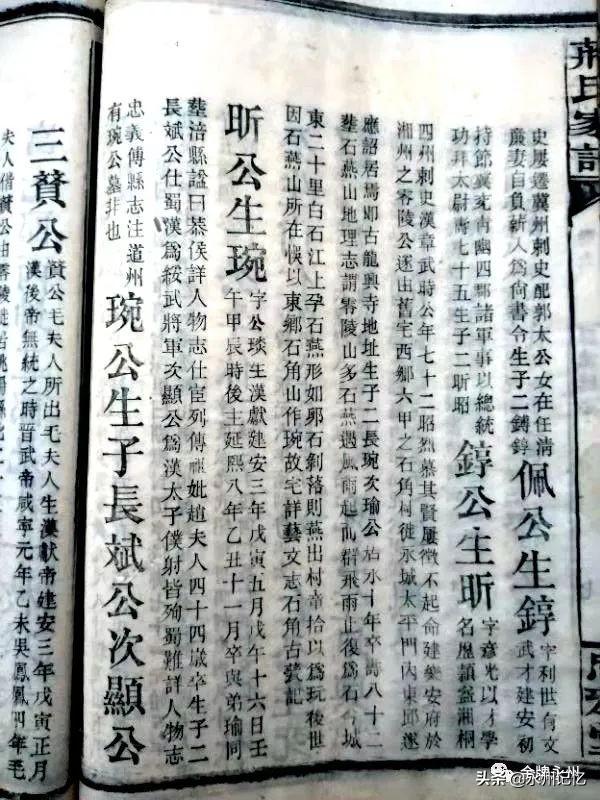 蔣氏家譜
史屢遷冀州刺史配郭太公女在任清
廉妻自負薪人爲尚書令生子二鏄錞
佩公生錞
字利世有文
武才建安初
持節冀兖青幽四郡諸軍事以總統
功拜太尉壽七十五生子二昕昭
錞公生昕
字意光以才學
名歷頴益湘桐
四州刺史漢章武時公年七十二昭烈慕其賢屢徵不起命建樂安府於
湘州之零陵公逐由舊宅西鄉六甲之石角村徙永城太平門内東邱遂
應詔居焉即古龍興寺地址生子二長琬次瑜公水十年卒壽八十二
塟石燕山地理志謂零陵山多石燕遇風雨起群飛雨止復爲石今城
東二十里白石江上孕石燕形如卵石剝落則燕出村童拾以爲玩後世
因石燕山所在悞以東鄉石角山作琬故宅詳藝文志石角古蹟記
昕公生琬
字公琰生漢獻建安三年戊寅五月戊午十六日壬
午甲辰時後主延熙八年乙丑十一月卒與弟瑜同
塟涪縣諡曰恭侯詳人物志仕宦列傳妣趙夫人四十四歲卒生子二
長斌公仕蜀漢爲綏武將軍次顯公爲漢太子僕射皆殉蜀難詳人物志
忠義傳縣志注道州
有琬公墓非也
琬公生子長斌公次顯公
三賛公
賛公毛夫人所出毛夫人生漢献帝建安三年戊寅正月
漢後帝無統之時晉武帝咸寧元年乙未吳鳳凰四年毛
夫人偕賛公由零陵徙
金牌永州
头条 @永州记忆